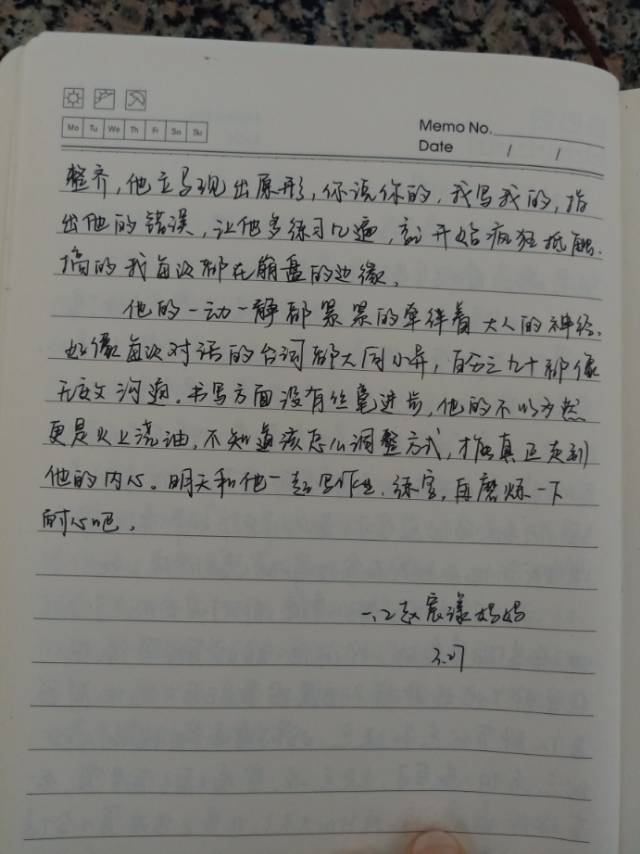 Mo Tu We Th Fr Sa Su
Memo No.
Date / /
整齐,他立马现出原形,你说你的,我写我的,指
出他的错误,让他多练习几遍,就开始疯狂抵触.
搞的我每次都在崩盘的边缘。
他的一动一静都紧紧的牵绊着大人的神经.
好像每次对话的台词都大同小异,百分之九十都像
无效沟通。书写方面没有丝毫进步,他的不以为然
更是火上浇油,不知道该怎么调整方式,才能真正走到
他的内心。明天和他一起写作业.练字,再磨炼一下
耐心吧。
一.2赵宸漾妈妈
3.27